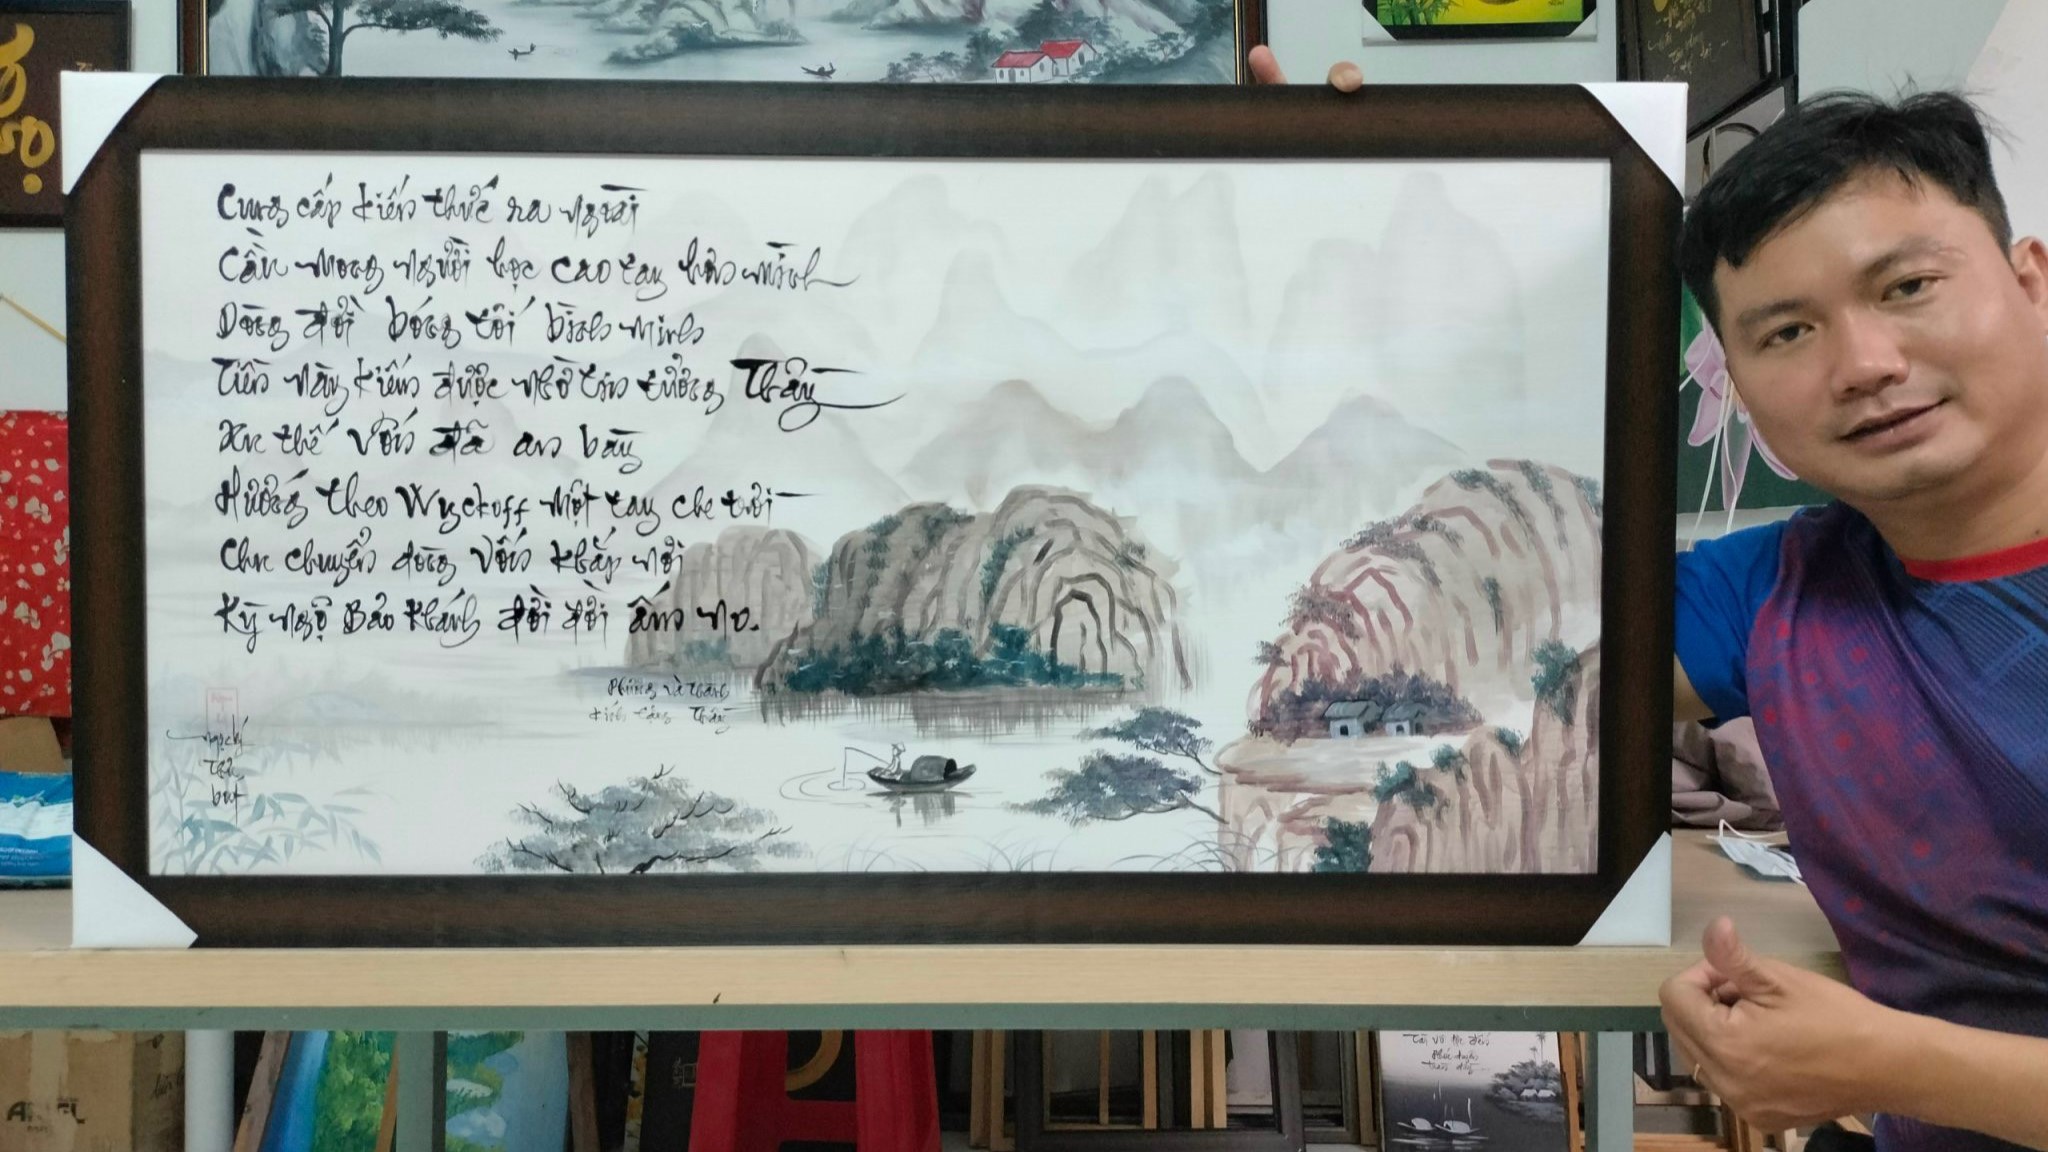 Cung cấp kiến thức ra ngoài
Cần mong người học cao tay hơn mình
Dòng đời bóng tối bình minh
Tiền này kiếm được nhờ tin tưởng Thầy
Xu thế vốn đã an bày
Hướng theo Wyckoff một tay che trời
Chu chuyển dòng vốn khắp nơi
Kỳ ngộ Bảo Khánh đời đời ấm no.
Phùng và Trang
kính tặng Thầy
Ngọc Lý
bút